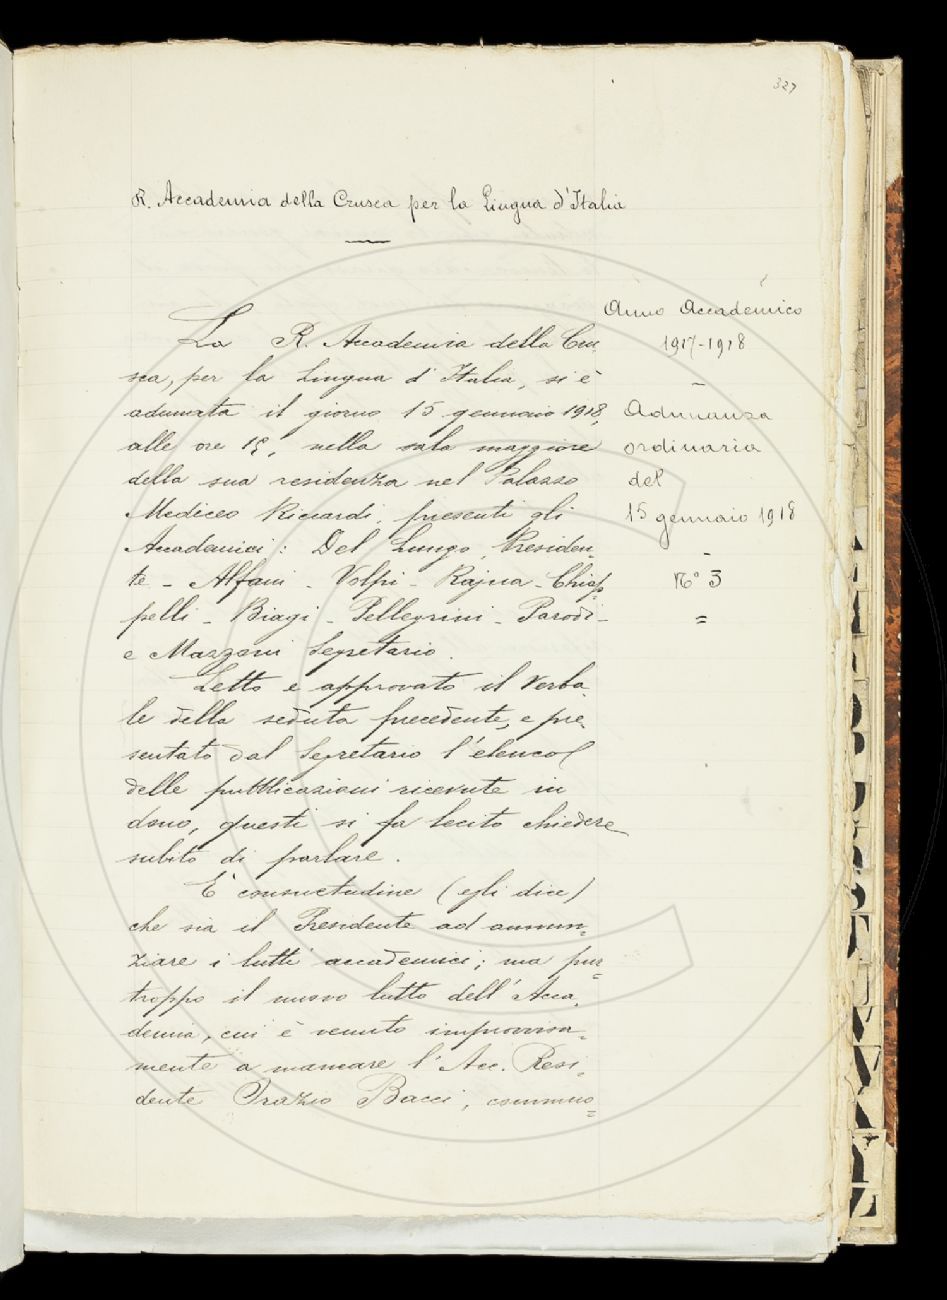 327
R. Accademia della Crusca per la Lingua d'Italia
Anno Accademico
1917-1918
Adunanza
ordinaria
del
15 gennaio 1918
N° 3
La R. Accademia della Cru-
sca, per la Lingua d'Italia, si è
adunata il giorno 15 gennaio 1918,
alle ore 15, nella sala maggiore
della sua residenza nel Palazzo
Mediceo Riccardi, presenti gli
Accademici: Del Lungo, Presiden-
te - Alfani - Volpi - Rajna - Chiap-
pelli - Biagi - Pellegrini - Parodi -
e Mazzoni Segretario.
Letto e approvato il Verba-
le della seduta precedente, e pre-
sentato dal Segretario l'elenco
delle pubblicazioni ricevute in
dono, questi si fa lecito chiedere
subito di parlare.
E' consuetudine (egli dice)
che sia il Presidente ad annun-
ziare i lutti accademici; ma pur-
troppo il nuovo lutto dell'Acca-
demia, cui è venuto improvvisa-
mente a mancare l'Acc. Resi-
dente Orazio Bacci, commuo-